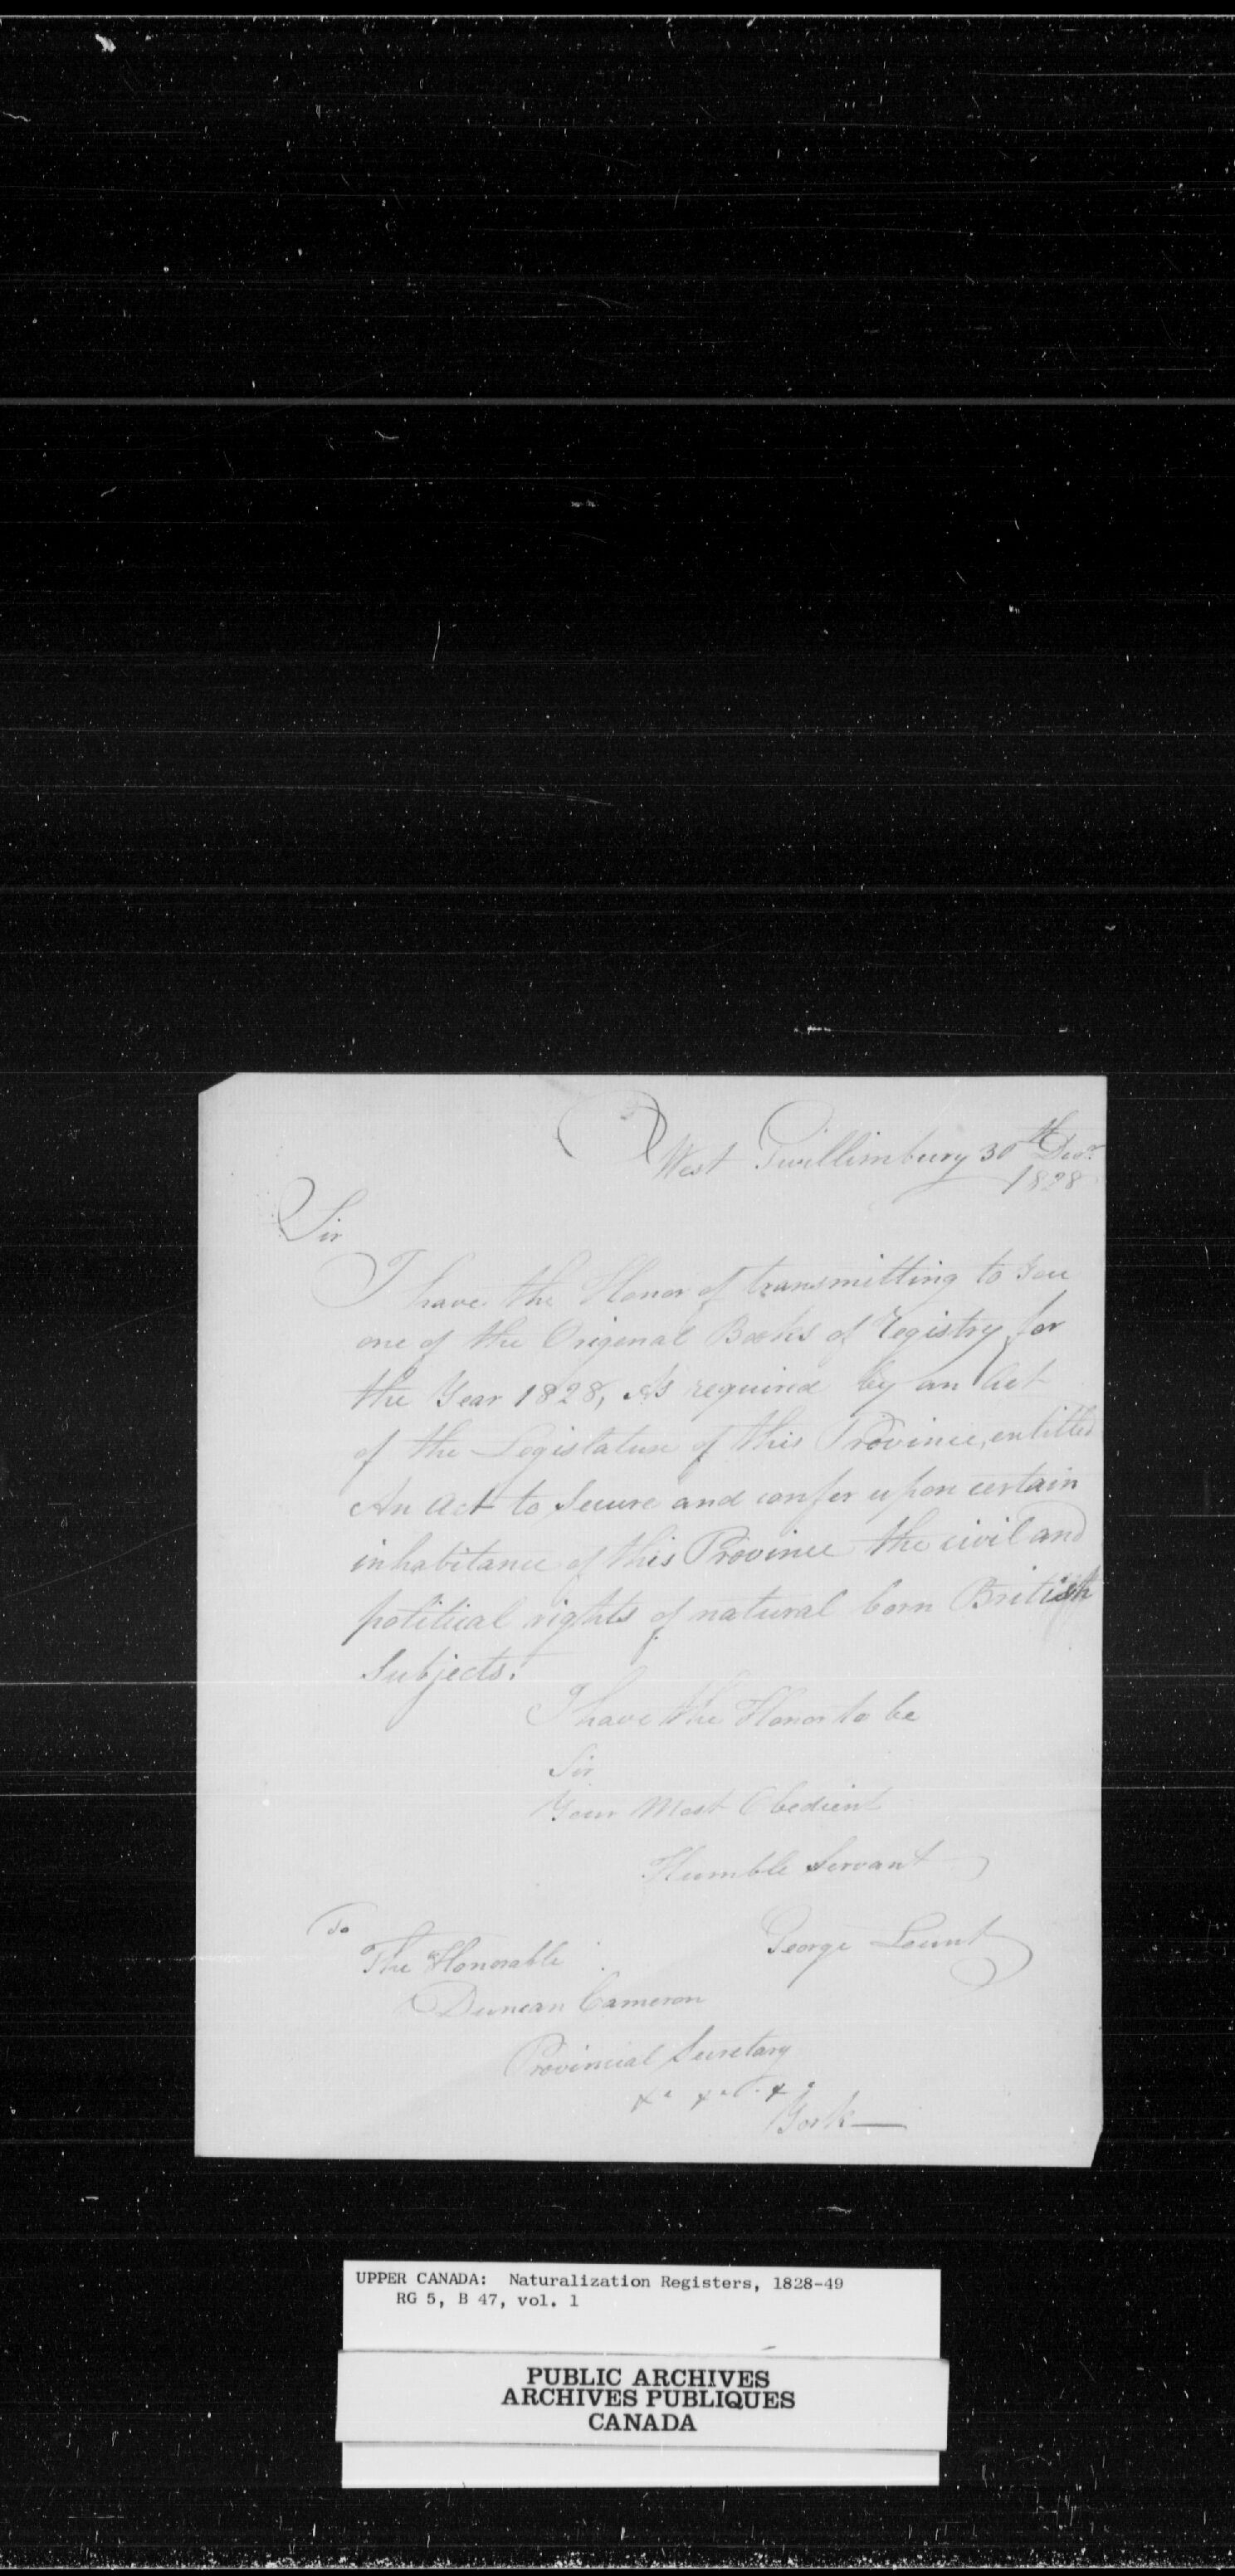 West Gwillimbury 30th Decr.
1828
Sir
I have the Honor of transmitting to You
one of the Origenal Books of Registry for
the Year 1828, As required by an Act
of the Legislature of this Province, entitled
An Act to Secure and confer upon certain
inhabitance of this Province the civil and
political rights of natural born British
Subjects.
I have the Honor to be
Sir
Your Most Obedient
Humble Servant
George Lount
To
The Honorable
Duncan Cameron
Provincial Secretary
&c &c &c
York
UPPER CANADA: Naturalization Registers, 1828-49
RG 5, B 47, vol. 1
PUBLIC ARCHIVES
ARCHIVES PUBLIQUES
CANADA